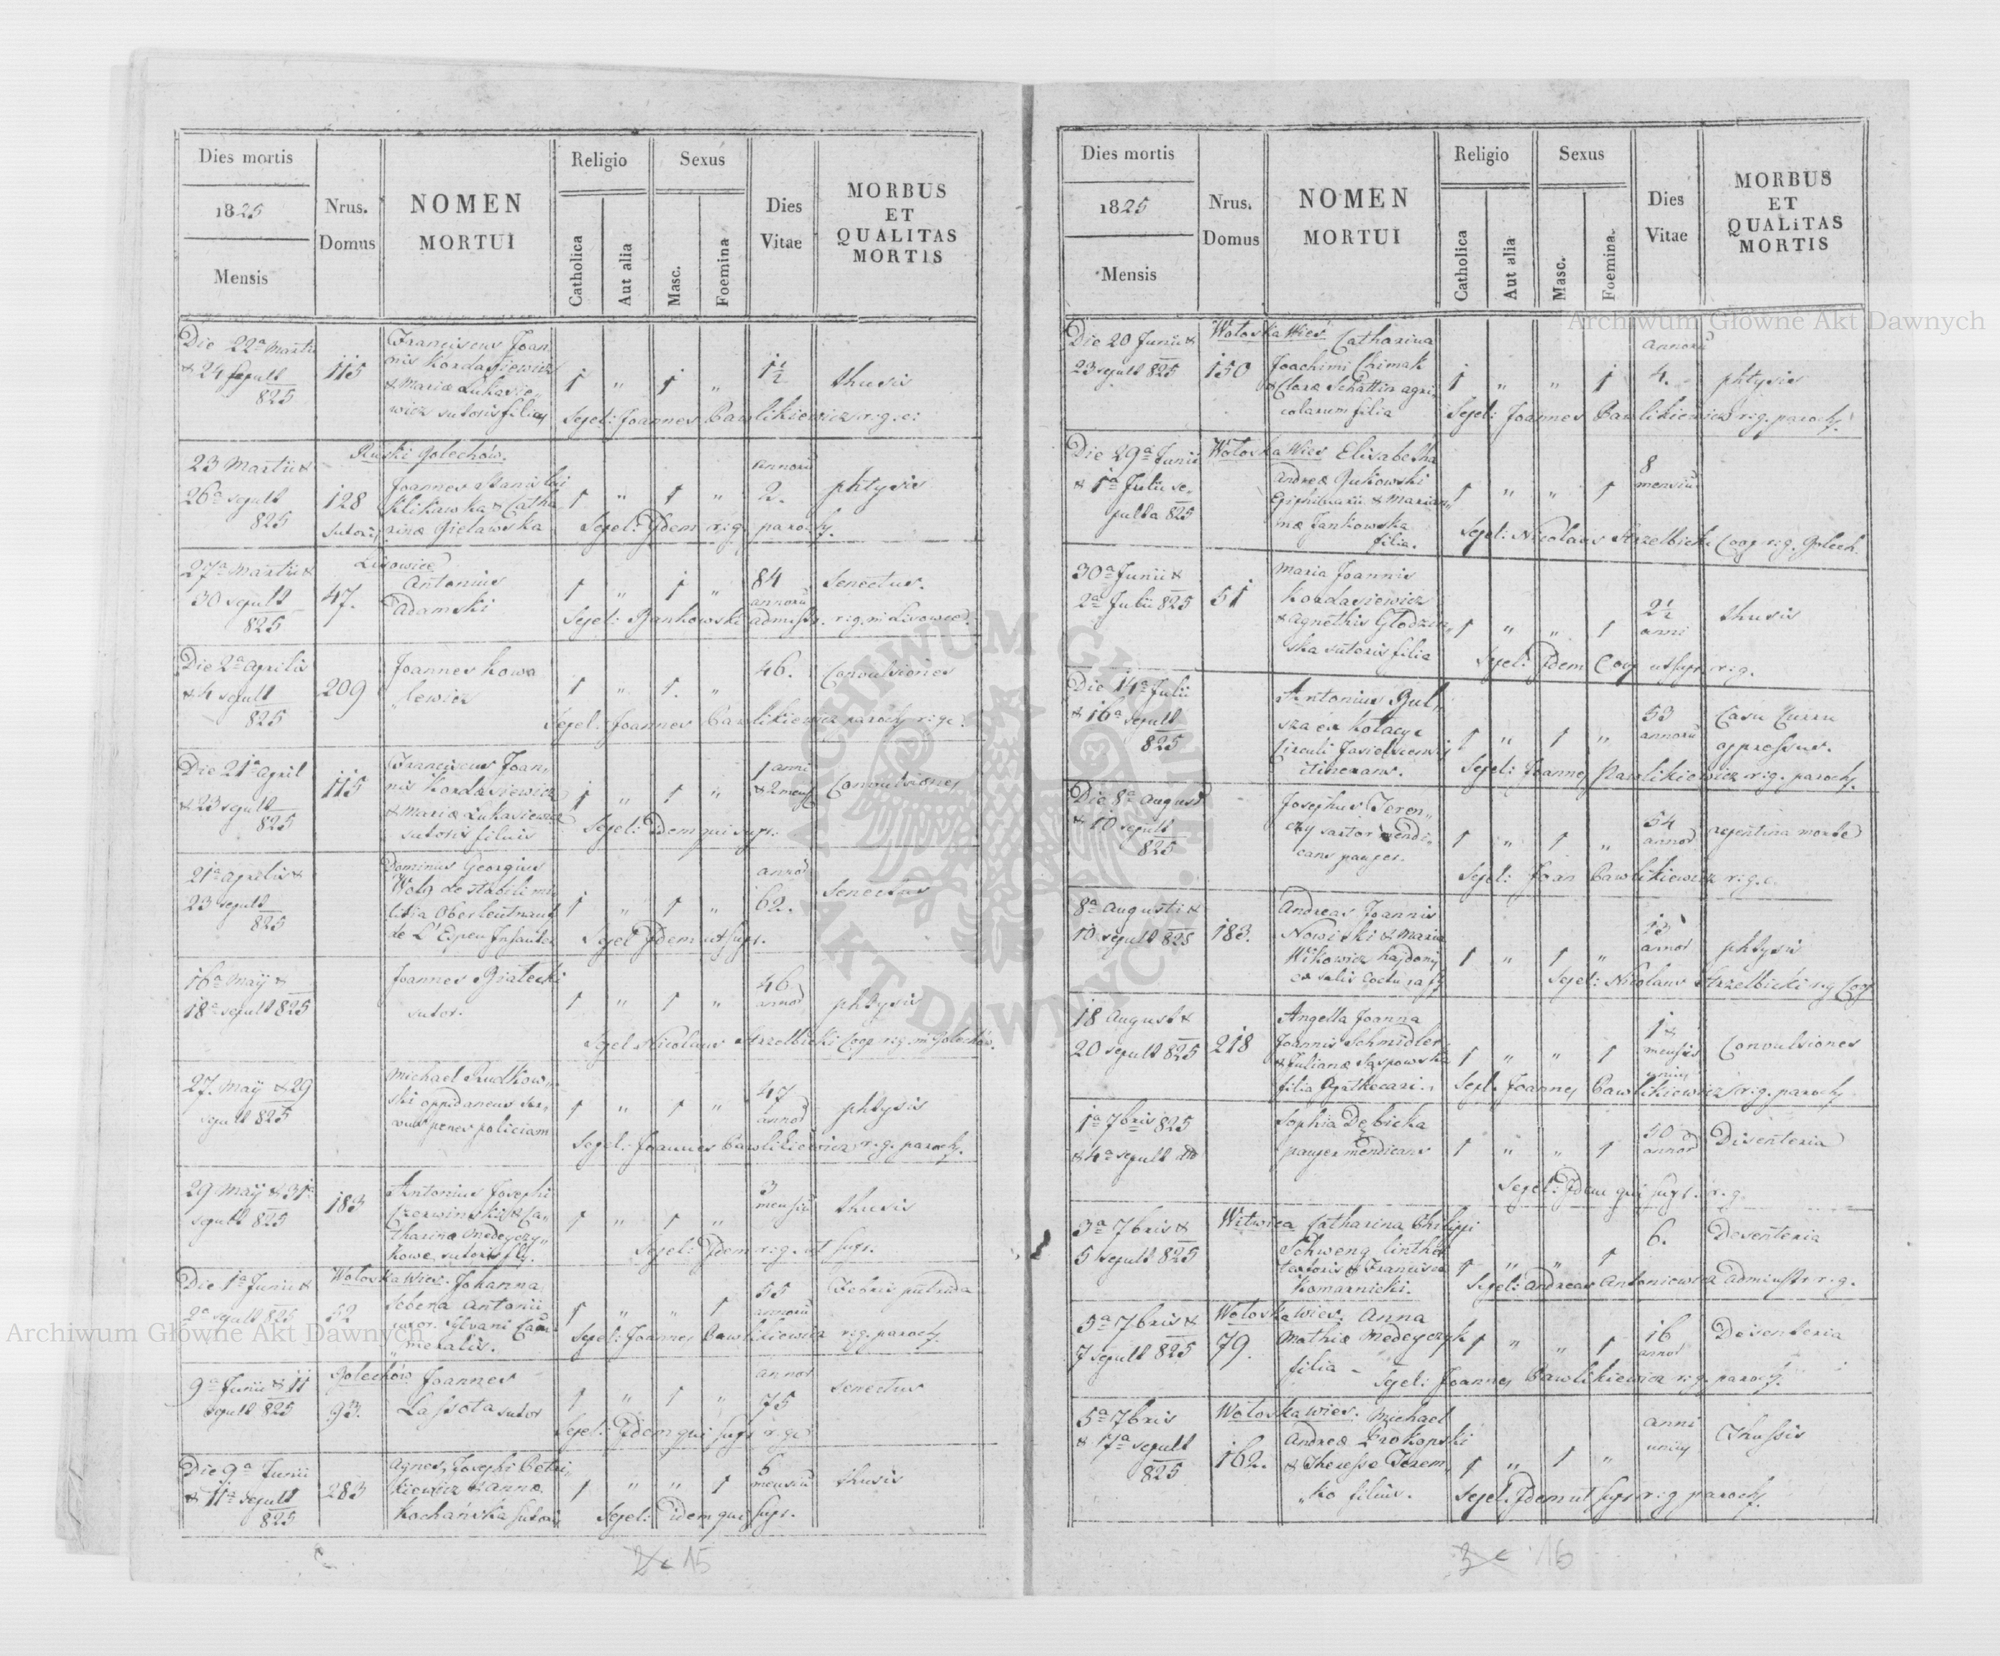 Dies mortis
1825
Mensis
Nrus.
Domus
NOMEN
MORTUI
Religio
Catholica
Aut alia
Sexus
Masc.
Foemina
Dies
Vitae
MORBUS
ET
QUALITAS
MORTIS
Die 22a Martii
& 24 sepult
825
115
Franciscus Joan
nis Kordasiewicz
& Mariæ Łukasie
wicz sutoris filius
1 " 1 "
1½
thusis
Sepel: Joannes Pawlikiewicz r.g.c:
Ruski Bolechów.
23 Martii &
26a sepult
825
128
Joannes Stanislai
& Catha
rinæ Gielawska
1 " 1 "
annorũ
2.
phtysis
Sepel: Idem r.g. paroch.
Lisowice
27a Martii &
30 sepult
825
47.
Antonius
Adamski
1 " 1 "
84
annorũ
Senectus.
Sepel: Bankowski admstr. r.g. in Lisowice.
Die 2a Aprilis
& 4 sepult
825
209
Joannes Kowa
lewicz
1 " 1. "
46.
Convulsiones
Sepel: Joannes Pawlikiewicz paroch r.g.c.
Die 21a April
& 23 sepult
825
115
Franciscus Joan
nis Kordasiewicz
& Mariæ Łukasiewicz
sutoris filius
1 " 1 "
1 anni
& 2 mens
Convulsiones
Sepel: Idem qui supr.
21a Aprilis &
23 sepult
825
Dominus Georgius
Woły de stabili mi
litia Oberleutnant
de L'Espen Infanter
1 " 1 "
annor
62.
Senectus
Sepel Idem ut supr.
16a Maÿ &
18a sepult 825
Joannes Białecki
sutor.
1 " 1 "
46
annor
phtysis
Sepel Nicolaus Strzelbicki Coop r.g. in Bolechów.
27. Maÿ & 29
sepult 825
Michael Rudkow
ski oppidaneus ser
vus penes policiam
1 " 1 "
47
annor
phtysis
Sepel: Joannes Pawlikiewicz r.g. paroch.
29 Maÿ & 31a
sepult 825
183
Antonius Josephi
Czerwinski & Ca
tharinæ Medeyczy
kowe sutoris fil.
1 " 1 "
3
mensiũ
thusis
Sepel: Idem r.g. ut supr.
Die 1a Junii &
2a sepult 825
52
Wołoska Wies. Johanna
Sebera Antonii
uxor. Sylvani Came
meralis.
1 " " 1
55
annorũ
Febris putrida
Sepel: Joannes Pawlikiewicz r.g. paroch
9a Junii & 11
sepult 825
93.
Bolechów Joannes
Lassota sutor
1 " 1 "
annor
75
Senectus
Sepel: Idem qui supr r.g.c
Die 9a Junii
& 11a sepult
825
283
Agnes, Josephi Petri
kiewicz & Annæ
Kochańska sutor
1 " " 1
5
mensiũ
thusis
Sepel: Idem qui supr.
15
Dies mortis
1825
Mensis
Nrus.
Domus
NOMEN
MORTUI
Religio
Catholica
Aut alia
Sexus
Masc.
Foemina.
Dies
Vitae
MORBUS
ET
QUALiTAS
MORTIS
Die 20 Junii &
23 sepult 825
150
Wołoska Wies Catharina
Joachimi Chimak
& Claræ Schattin agri
colarum filia
1 " " 1
annorũ
4.
phtysis
Sepel: Joannes Pawlikiewicz r.g. paroch.
Die 29a Junii
& 1a Julii se
pulta 825
Wołoska Wies Elisabetha
Andreæ Gukowski
& Marian
næ Jankowska
filia.
1 " " 1
8
mensiũ
Sepel: Nicolaus Strzelbicki Coop r.g. Bolech.
30a Junii &
2a Julii 825
51
Maria Joannis
Kordasiewicz
& Agnethis Głodzin
ska sutoris filia
1 " " 1
2½
anni
thusis
Sepel: Idem Coop ut supr r.g.
Die 14a Julii
& 16a sepult
825
Antonius Gul
sza ex Kołacyc
Circuli Jasielscensis
itinerans.
1 " 1 "
53
annorũ
Casu Curru
oppressus.
Sepel: Joannes Pawlikiewicz r.g. paroch.
Die 8a August
& 10 sepult
825
Josephus Teren
czy sartor mendi
cans pauper.
1 " 1 "
54
annor
repentina morte
Sepel: Joan Pawlikiewicz r.g.c.
8a Augusti &
10 sepult 825
183.
Andreas Joannis
Nowiski & Maria
Wikowicz
1 " 1 "
13
annor
phtysis
Sepel: Nicolaus Strzelbicki r.g Coop
18 August &
20 sepult 825
218
Angella Joanna
Joannis Schmidler
& Julianæ
filia Apthecari
1 " " 1
1 &
mensis
Convulsiones
Sepel: Joannes Pawlikiewicz r.g. paroch
1a 7bris 825
& 4a sepult
Sophia Dębicka
pauper mendicans
1 " " 1
50
annor
Disenteria
Sepel: Idem qui supr. r.g.
3a 7bris &
5 sepult 825
Witwica Catharina Philippi
Schweng linthea
textoris & Francisca
Komarnicki.
1 " " 1
6.
Desenteria
Sepel: Andreas Antoniewicz adminstr r.g.
5a 7bris &
7 sepult 825
79.
Wołoska wies. Anna
Mathiæ Medeyczyk
filia
1 " " 1
16
annor
Desenteria
Sepel: Joannes Pawlikiewicz r.g. paroch.
5a 7bris
& 17a sepult
825
162.
Wołoska wies. Michael
Andreæ Prokopski
& Theresæ Jerem
ko filius.
1 " 1 "
anni
unius
Thussis
Sepel: Idem ut supr r.g paroch.
16
Archiwum Główne Akt Dawnych
Archiwum Główne Akt Dawnych
ARCHIWUM GŁÓWNE AKT DAWNYCH